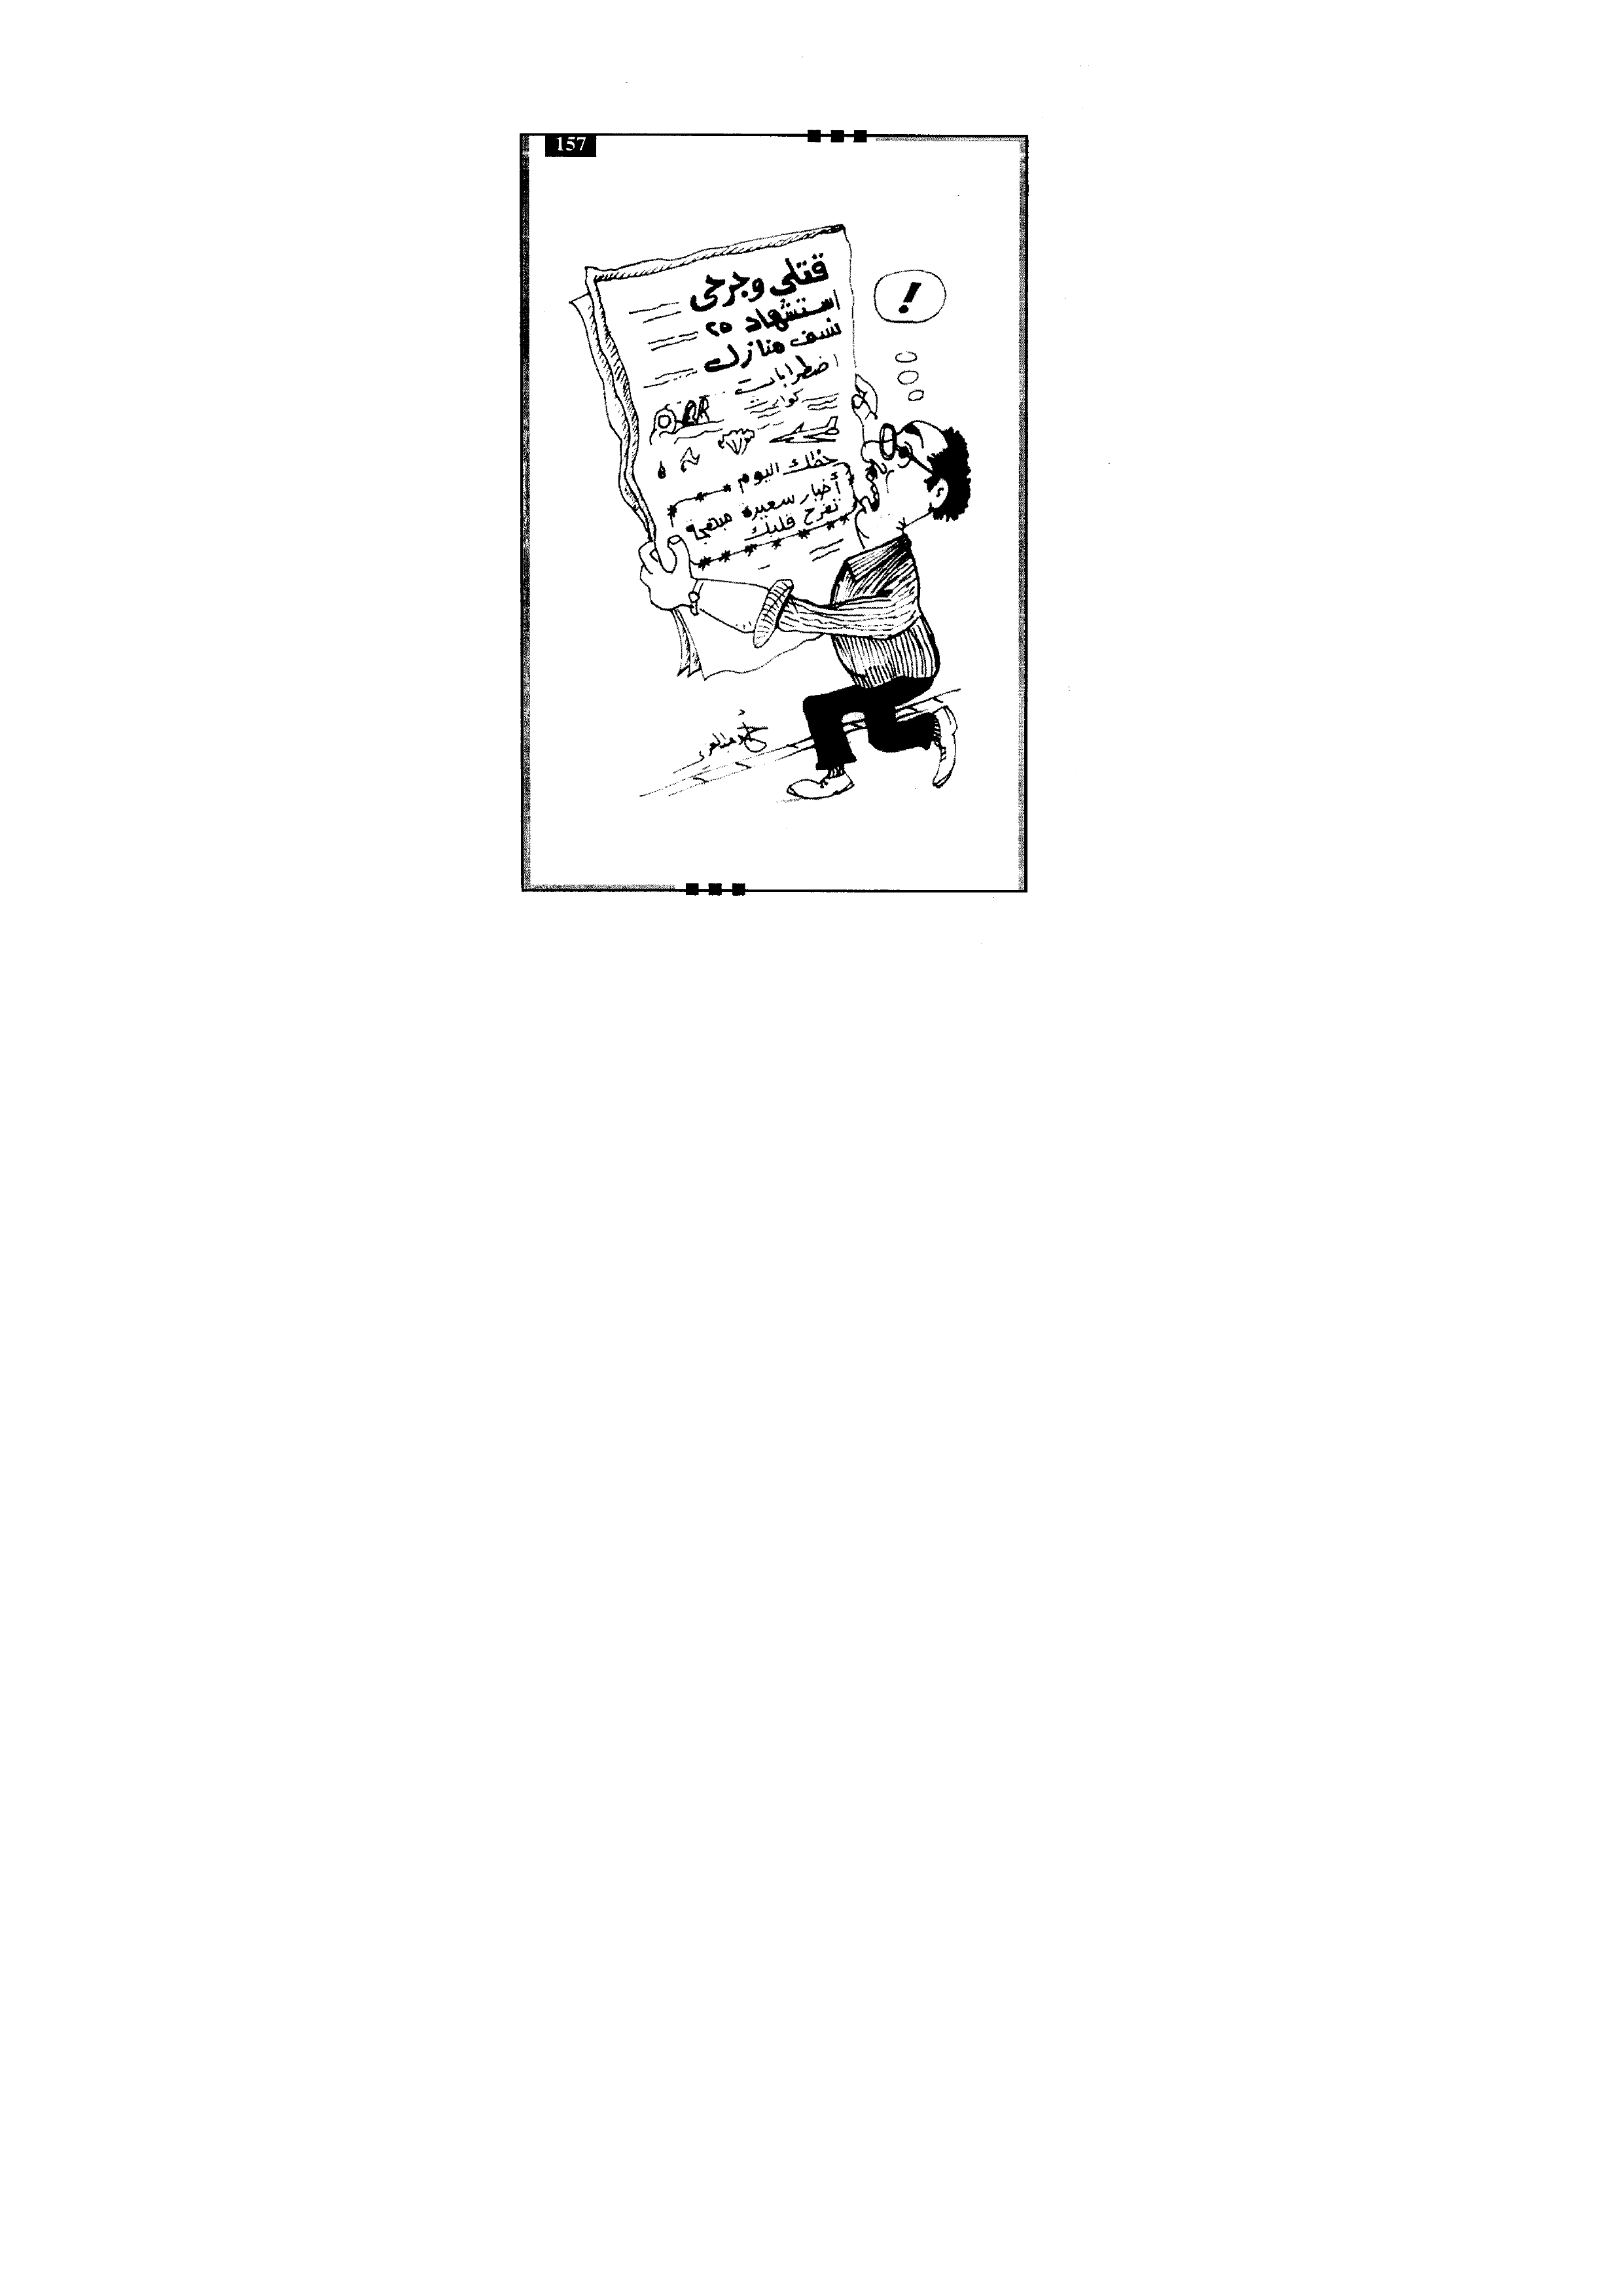 157
قتلى وجرحى
استشهاد ٢٥
نسف منازل
اضطرابات
كوارث
!
حظك اليوم
أخبار سعيدة مبهجة
تفرح قلبك